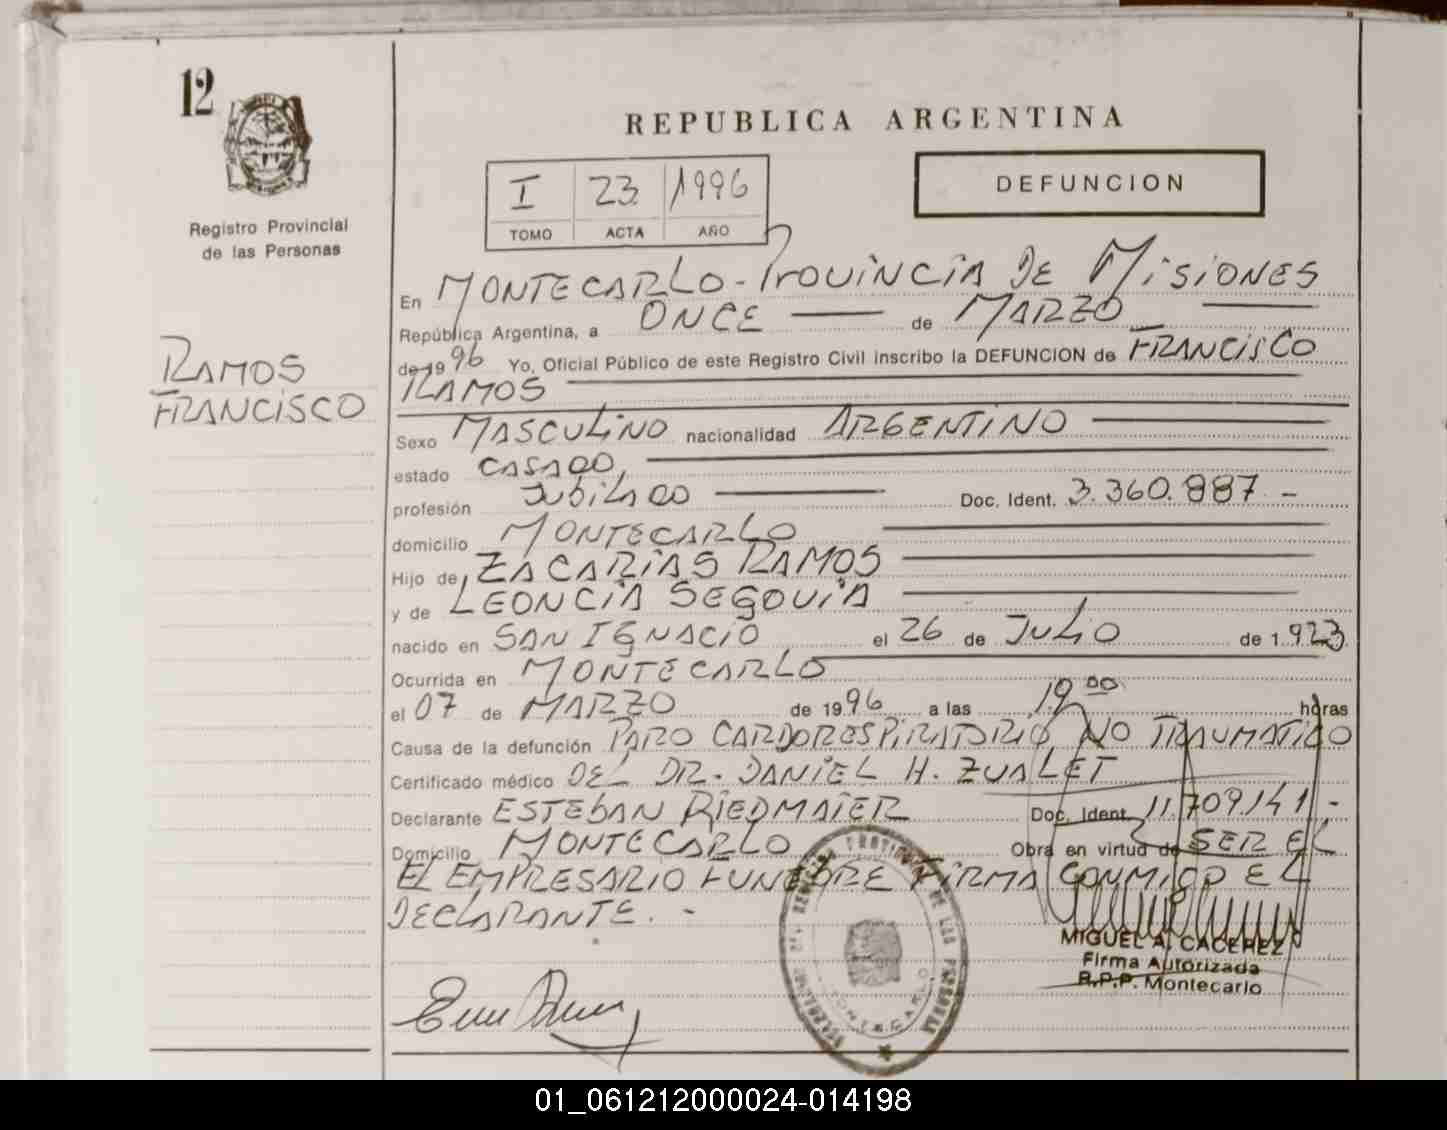 12
REPUBLICA ARGENTINA
I 23 1996
TOMO ACTA AÑO
DEFUNCION
Registro Provincial
de las Personas
RAMOS
FRANCISCO
En MONTECARLO - PROVINCIA DE MISIONES
República Argentina, a ONCE de MARZO
de 19 96 Yo, Oficial Público de este Registro Civil inscribo la DEFUNCION de FRANCISCO
RAMOS
Sexo MASCULINO nacionalidad ARGENTINO
estado CASADO,
profesión JUBILADO Doc. Ident. 3.360.887 -
domicilio MONTECARLO
Hijo de ZACARIAS RAMOS
y de LEONCIA SEGOVIA
nacido en SAN IGNACIO el 26 de JULIO de 1.923
Ocurrida en MONTECARLO
el 07 de MARZO de 1996 a las 19 00 horas
Causa de la defunción PARO CARDORESPIRATORIO, NO TRAUMATICO
Certificado médico DEL DR. DANIEL H. ZUALET
Declarante ESTEBAN RIEDMAIER Doc. Ident. 11.709.141 -
Domicilio MONTECARLO Obra en virtud de SER EL
EL EMPRESARIO FUNEBRE FIRMA CONMIGO EL
DECLARANTE. -
PROVINCIAL DE LAS PERSONAS
MONTECARLO
MIGUEL A. CACEREZ
Firma Autorizada
R.P.P. Montecarlo
01_061212000024-014198